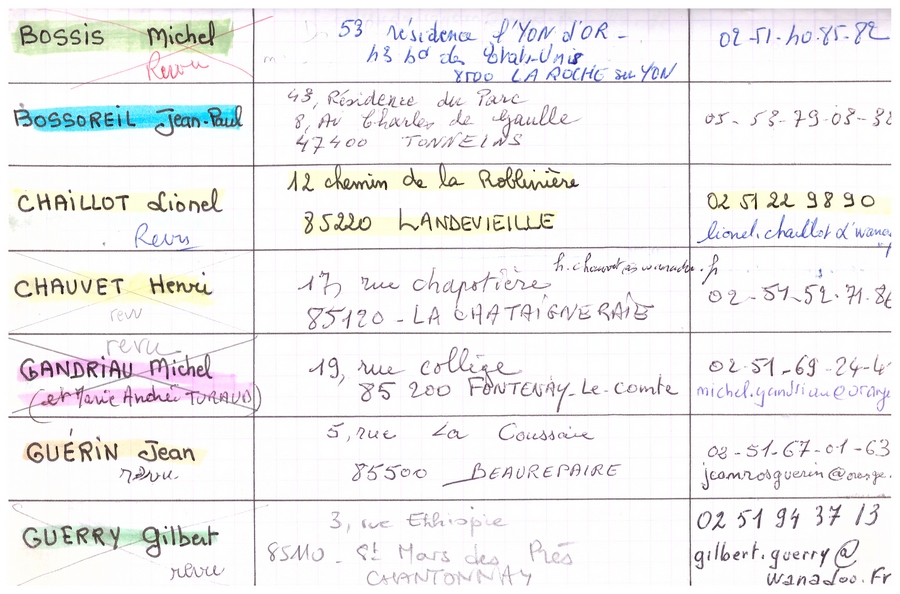 BOSSIS Michel
Revu
53 résidence l'YON d'OR -
h3 bd des Etats-Unis
8500 LA ROCHE sur YON
02-51-40-85-82
BOSSOREIL Jean-Paul
43, Résidence du Parc
8, Av Charles de Gaulle
47400 TONNEINS
05-53-79-03-32
CHAILLOT Lionel
Revu
12 chemin de la Roblinière
85220 LANDEVIEILLE
02 51 22 98 90
lionel.chaillot
CHAUVET Henri
revu
h.chauvet@wanadoo.fr
17, rue chapotière
85120 - LA CHATAIGNERAIE
02-51-52-71-86
revu
GANDRIAU Michel
(et Marie Andrée TURAUD)
19, rue collège
85 200 FONTENAY-Le-Comte
02-51-69-24-4
michel.gandriau@orange
GUÉRIN Jean
revu
5, rue La Coussaie
85500 BEAUREPAIRE
02-51-67-01-63
jeanrosguerin@orange.
GUERRY Gilbert
revu
3, rue Ethiopie
85110 - St Mars des Prés
CHANTONNAY
02 51 94 37 13
gilbert.guerry@
wanadoo.Fr